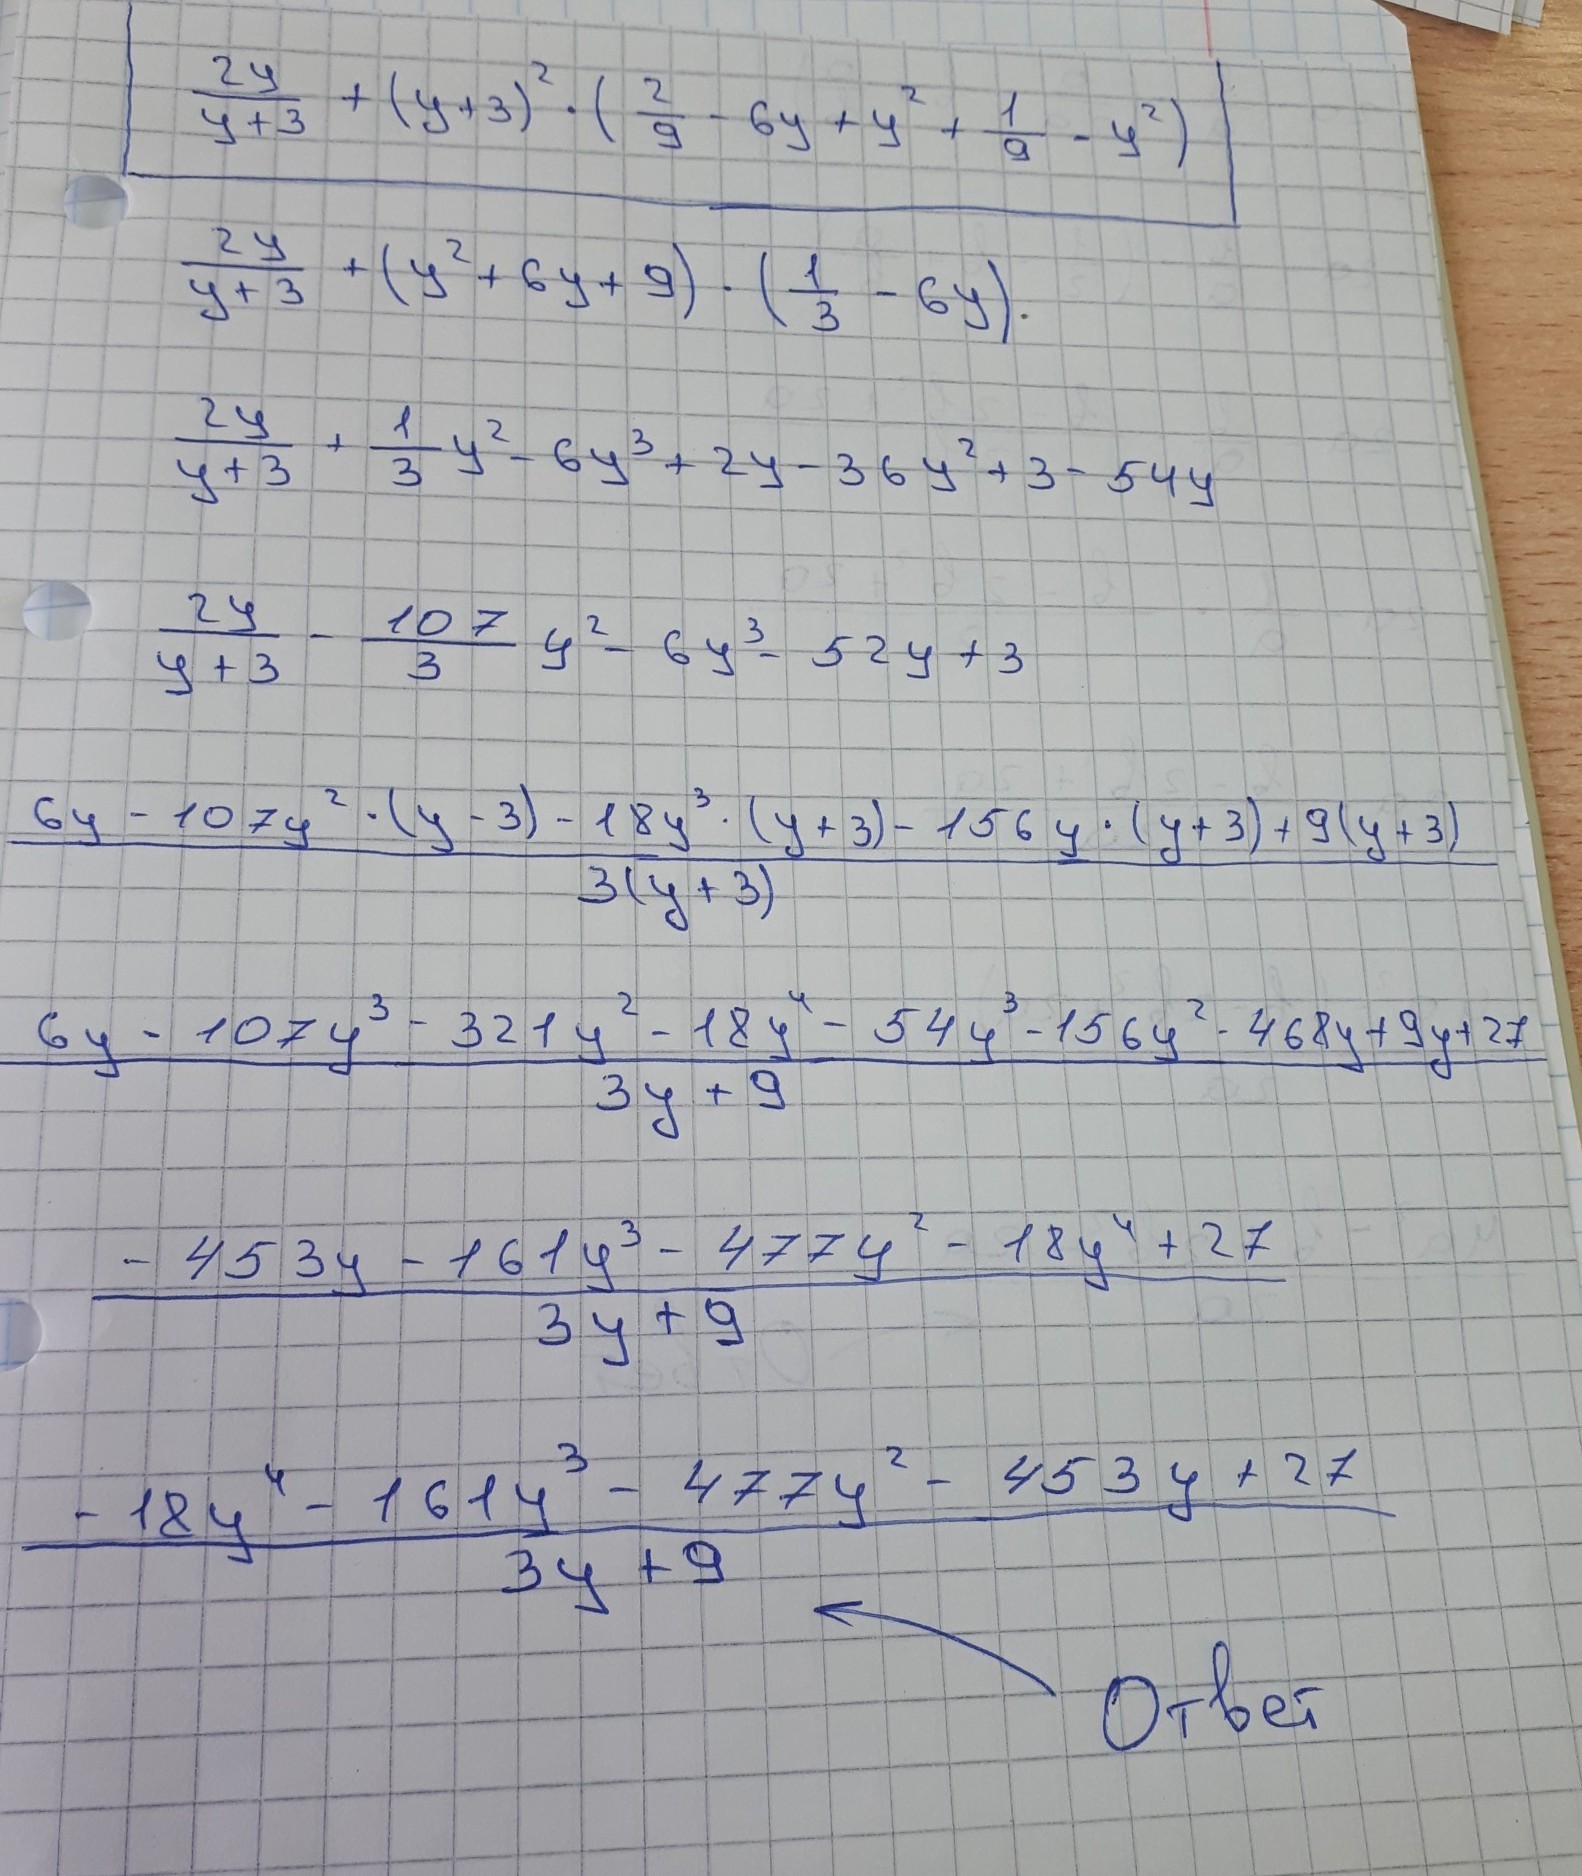 2y/(y+3) + (y+3)² · (2/9 - 6y + y² + 1/9 - y²)
2y/(y+3) + (y² + 6y + 9) · (1/3 - 6y).
2y/(y+3) + 1/3 y² - 6y³ + 2y - 36y² + 3 - 54y
2y/(y+3) - 107/3 y² - 6y³ - 52y + 3
(6y - 107y² · (y - 3) - 18y³ · (y+3) - 156y · (y+3) + 9(y+3))/(3(y+3))
(6y - 107y³ - 321y² - 18y⁴ - 54y³ - 156y² - 468y + 9y + 27)/(3y + 9)
(- 453y - 161y³ - 477y² - 18y⁴ + 27)/(3y + 9)
(- 18y⁴ - 161y³ - 477y² - 453y + 27)/(3y + 9)
Ответ